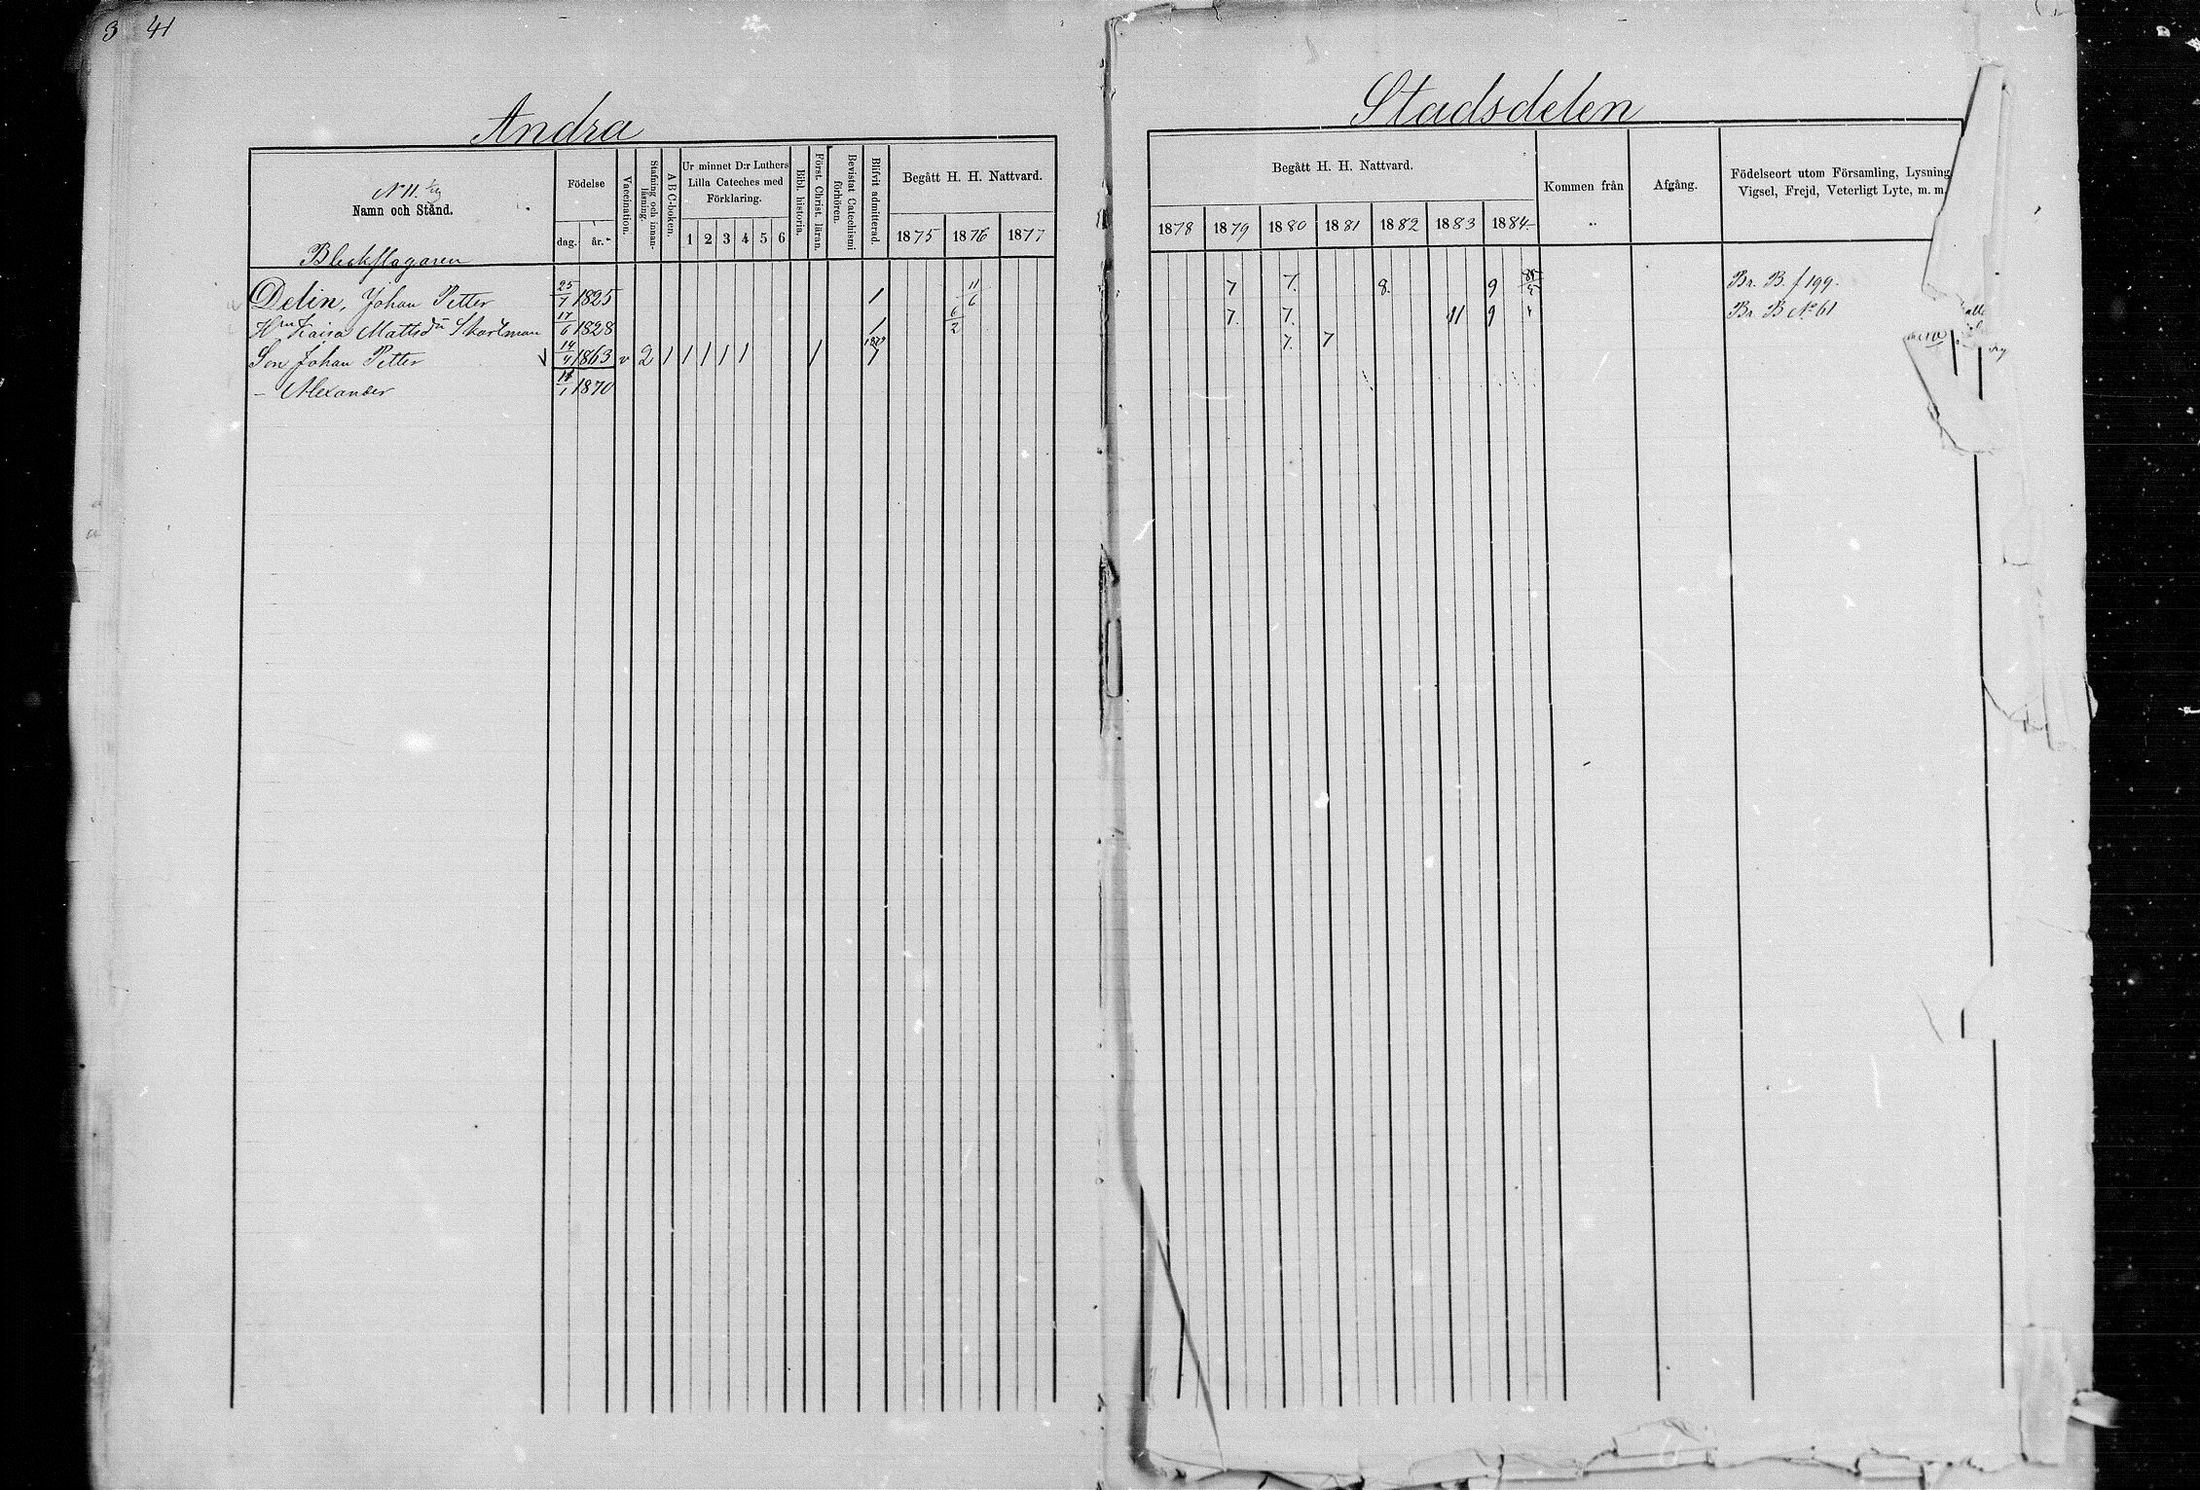 3 41
Andra
Stadsdelen
N 11.
Namn och Stånd.
Födelse
dag. år.
Vaccination.
Stafning och innanläsning.
A B C-boken.
Ur minnet D:r Luthers
Lilla Cateches med
Förklaring.
1 2 3 4 5 6
Bibl. historia.
Först. Christ. läran.
Bevistat Catechismi förhören.
Blifvit admitterad.
Begått H. H. Nattvard.
1875 1876 1877
Begått H. H. Nattvard.
1878 1879 1880 1881 1882 1883 1884
Kommen från
Afgång.
Födelseort utom Församling, Lysning
Vigsel, Frejd, Veterligt Lyte, m. m.
Bleckslagaren
Delin, Johan Petter 25/7 1825 1 11/6 7 7. 8. 9 Br. B. f 199.
Hru Kaisa Mattsdr Skarlman 17/6 1828 1 6/2 7. 7. 11 9 Br. B No 61
Son Johan Petter v 14/4 1863 v 2 1 1 1 1 1 1 1879 1 7. 7
– Alexander 11/1 1870